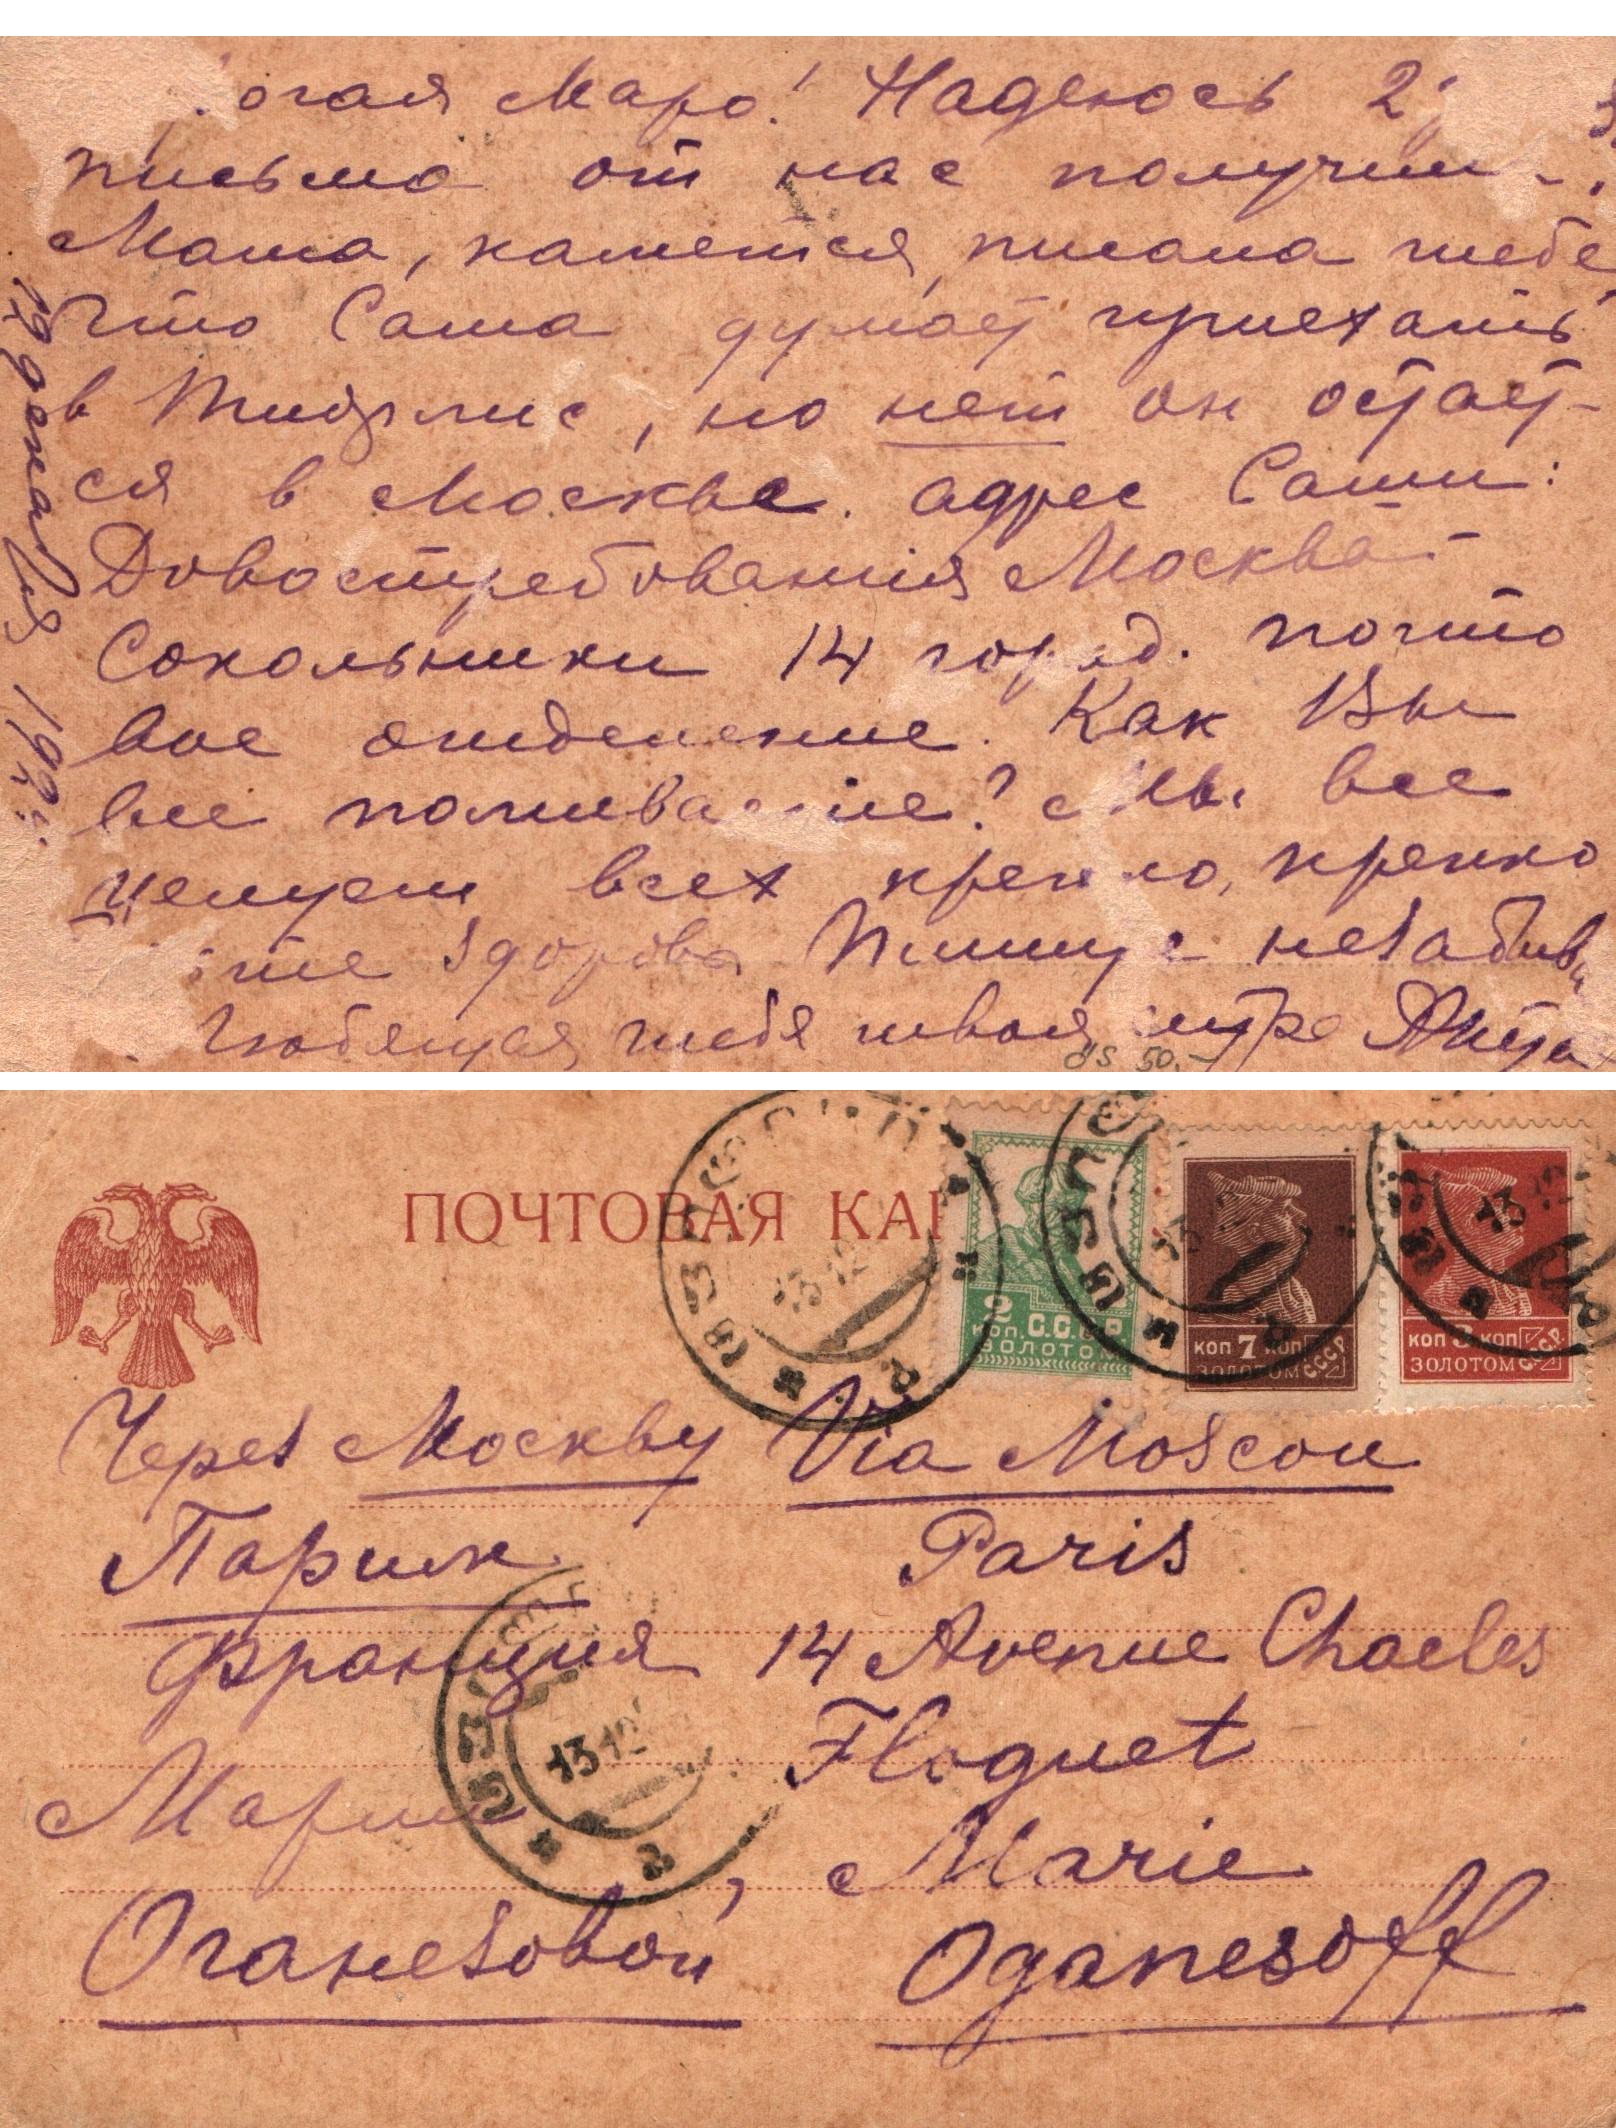 огая Маро! Надеюсь 2
письма от нас получили.
Маша, кажется, писала тебе
что Саша думает приехать
в Тифлис, но нет он остает-
ся в Москве. адрес Саши:
Довостребования Москва
Сокольники 14 город. почто
вое отделение. Как Вы
все поживаете? Мы все
целуем всех крепко, крепко
те здорова Пишите незабыв
Любящая тебя твоя
12 декабря 192
ПОЧТОВАЯ КАР
2 КОП. С.С.С.Р ЗОЛОТОМ
КОП 7 КОП ЗОЛОТОМ СССР
КОП 3 КОП ЗОЛОТОМ СССР
13 12
Через Москву Via Moscou
Париж Paris
Франция 14 Avenue Chaeles
Floquet
Марии Marie
Оганезовой Oganesoff